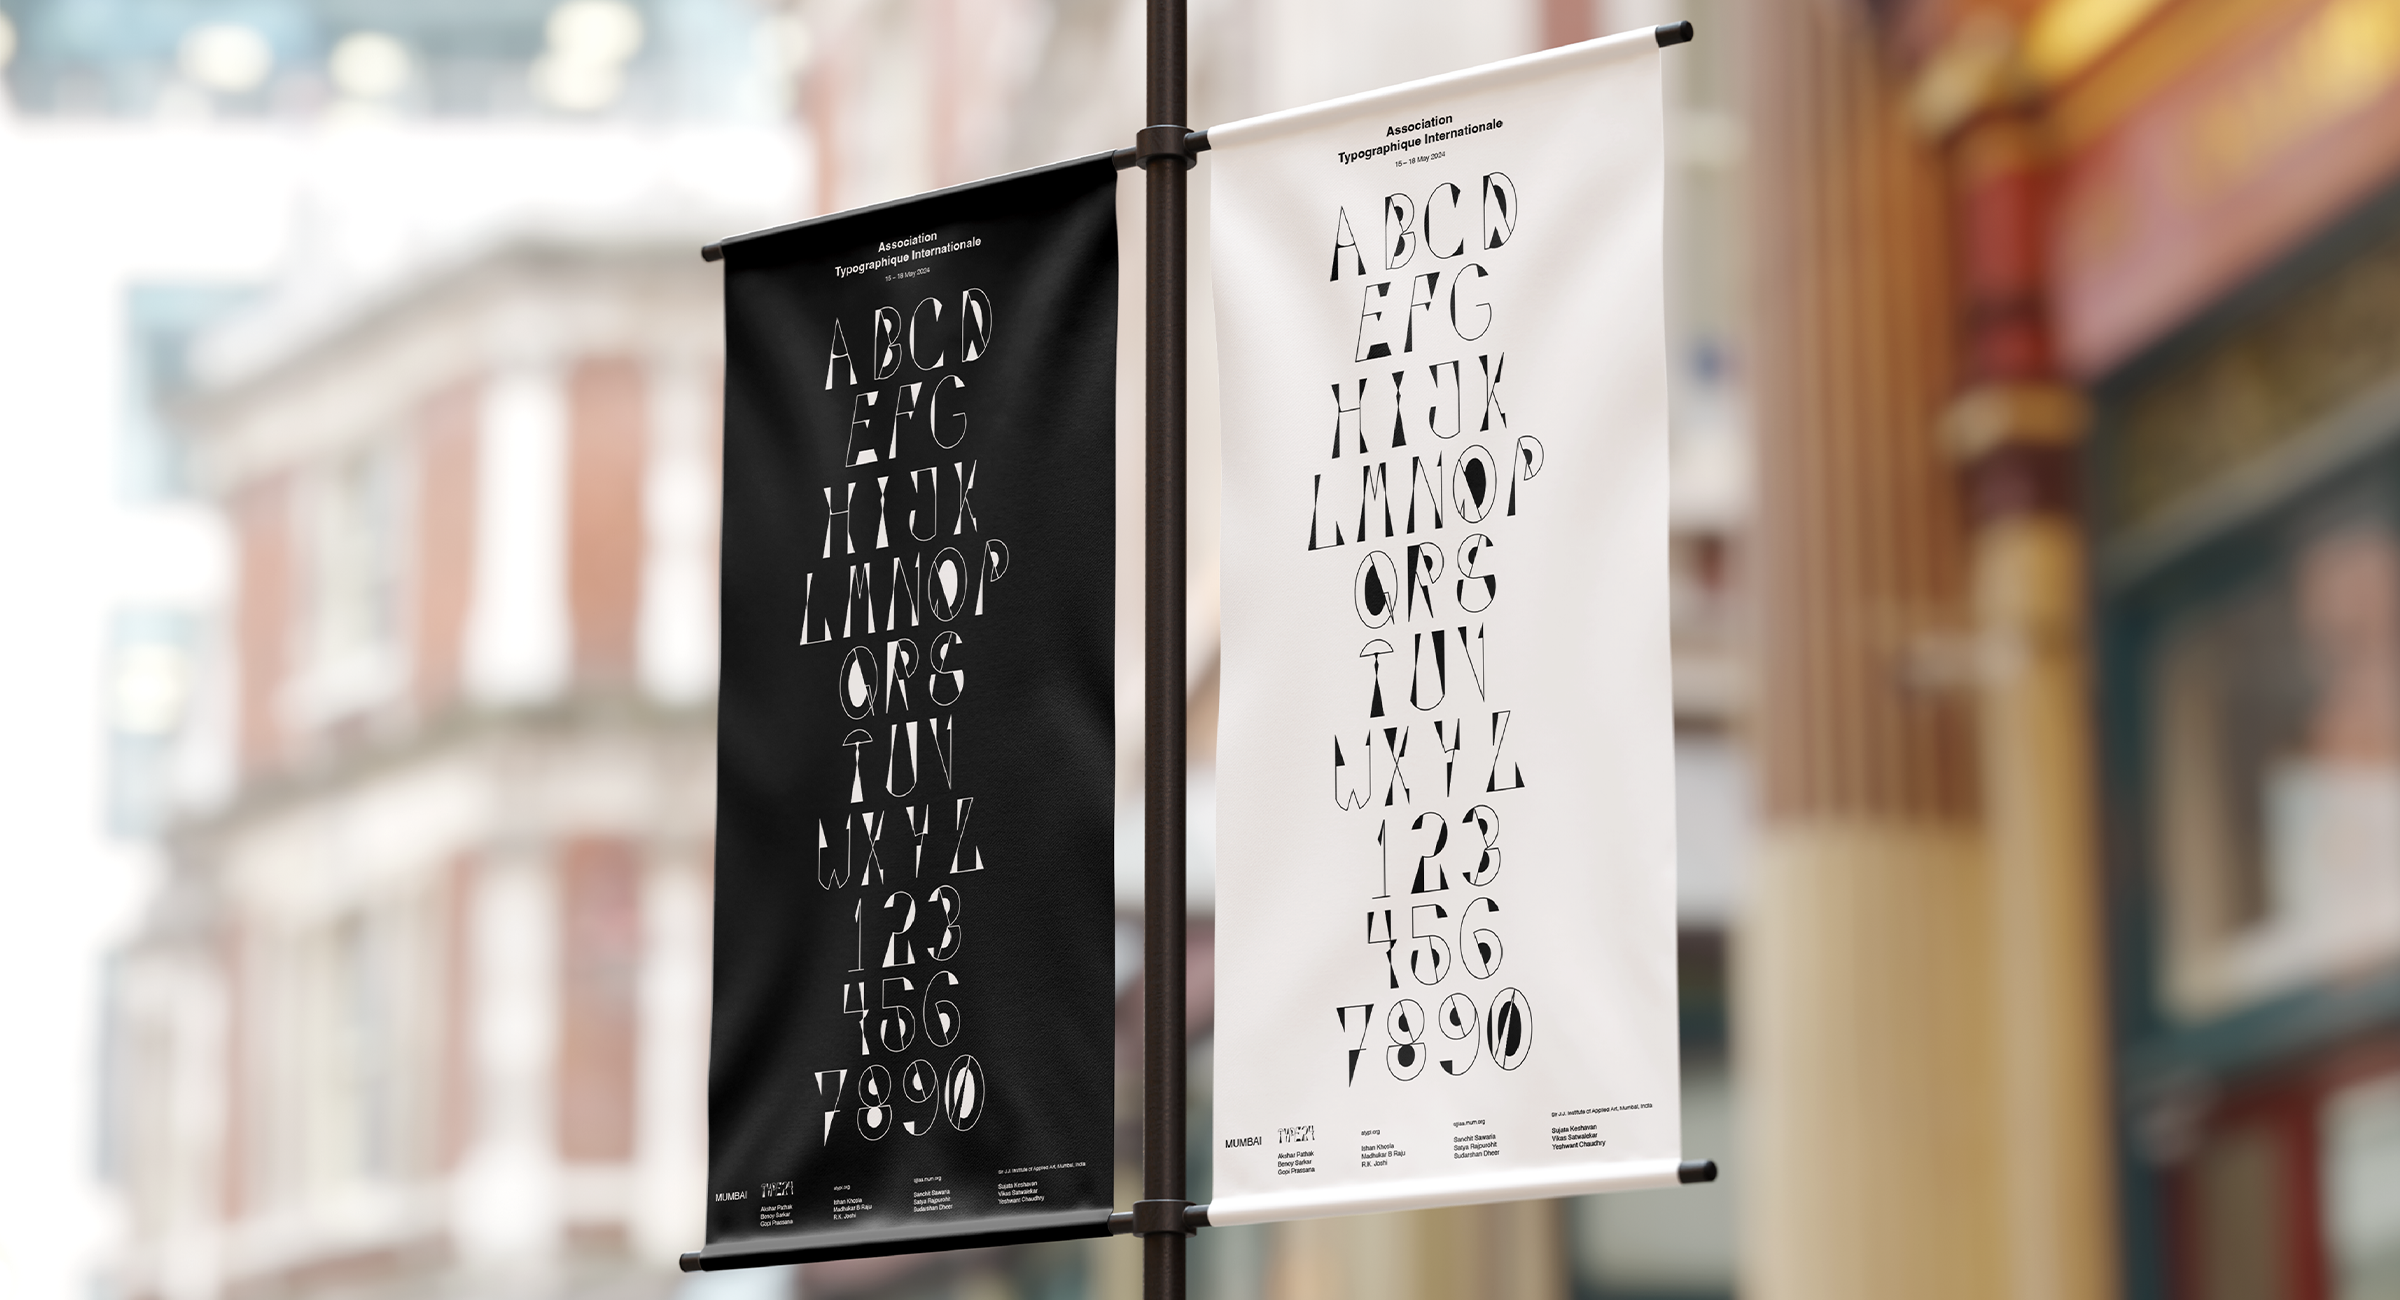 Association
Typographique Internationale
15 – 18 May 2024
ABCD
EFG
HIJK
LMNOP
QRS
TUV
WXYZ
123
456
7890
Sir J.J. Institute of Applied Art, Mumbai, India
MUMBAI
TYPE24
atypi.org
sjjiaa.mum.org
Akshar Pathak
Benoy Sarkar
Gopi Prassana
Ishan Khosla
Madhukar B Raju
R.K. Joshi
Sanchit Sawaria
Satya Rajpurohit
Sudarshan Dheer
Sujata Keshavan
Vikas Satwalekar
Yeshwant Chaudhry
Association
Typographique Internationale
15 – 18 May 2024
ABCD
EFG
HIJK
LMNOP
QRS
TUV
WXYZ
123
456
7890
Sir J.J. Institute of Applied Art, Mumbai, India
MUMBAI
TYPE24
atypi.org
Akshar Pathak
Benoy Sarkar
Gopi Prassana
Ishan Khosla
Madhukar B Raju
R.K. Joshi
Sanchit Sawaria
Satya Rajpurohit
Sudarshan Dheer
Sujata Keshavan
Vikas Satwalekar
Yeshwant Chaudhry